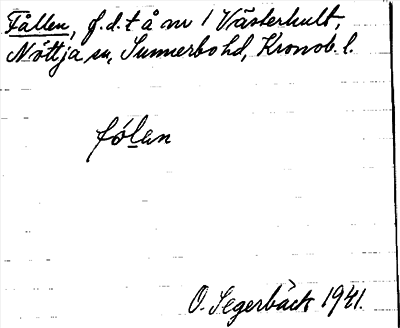 Fållen, f.d.t å nr 1 Västerhult,
Nöttja sn, Sunnerbo hd, Kronob. l.
fólen
O. Segerbäck 1941.